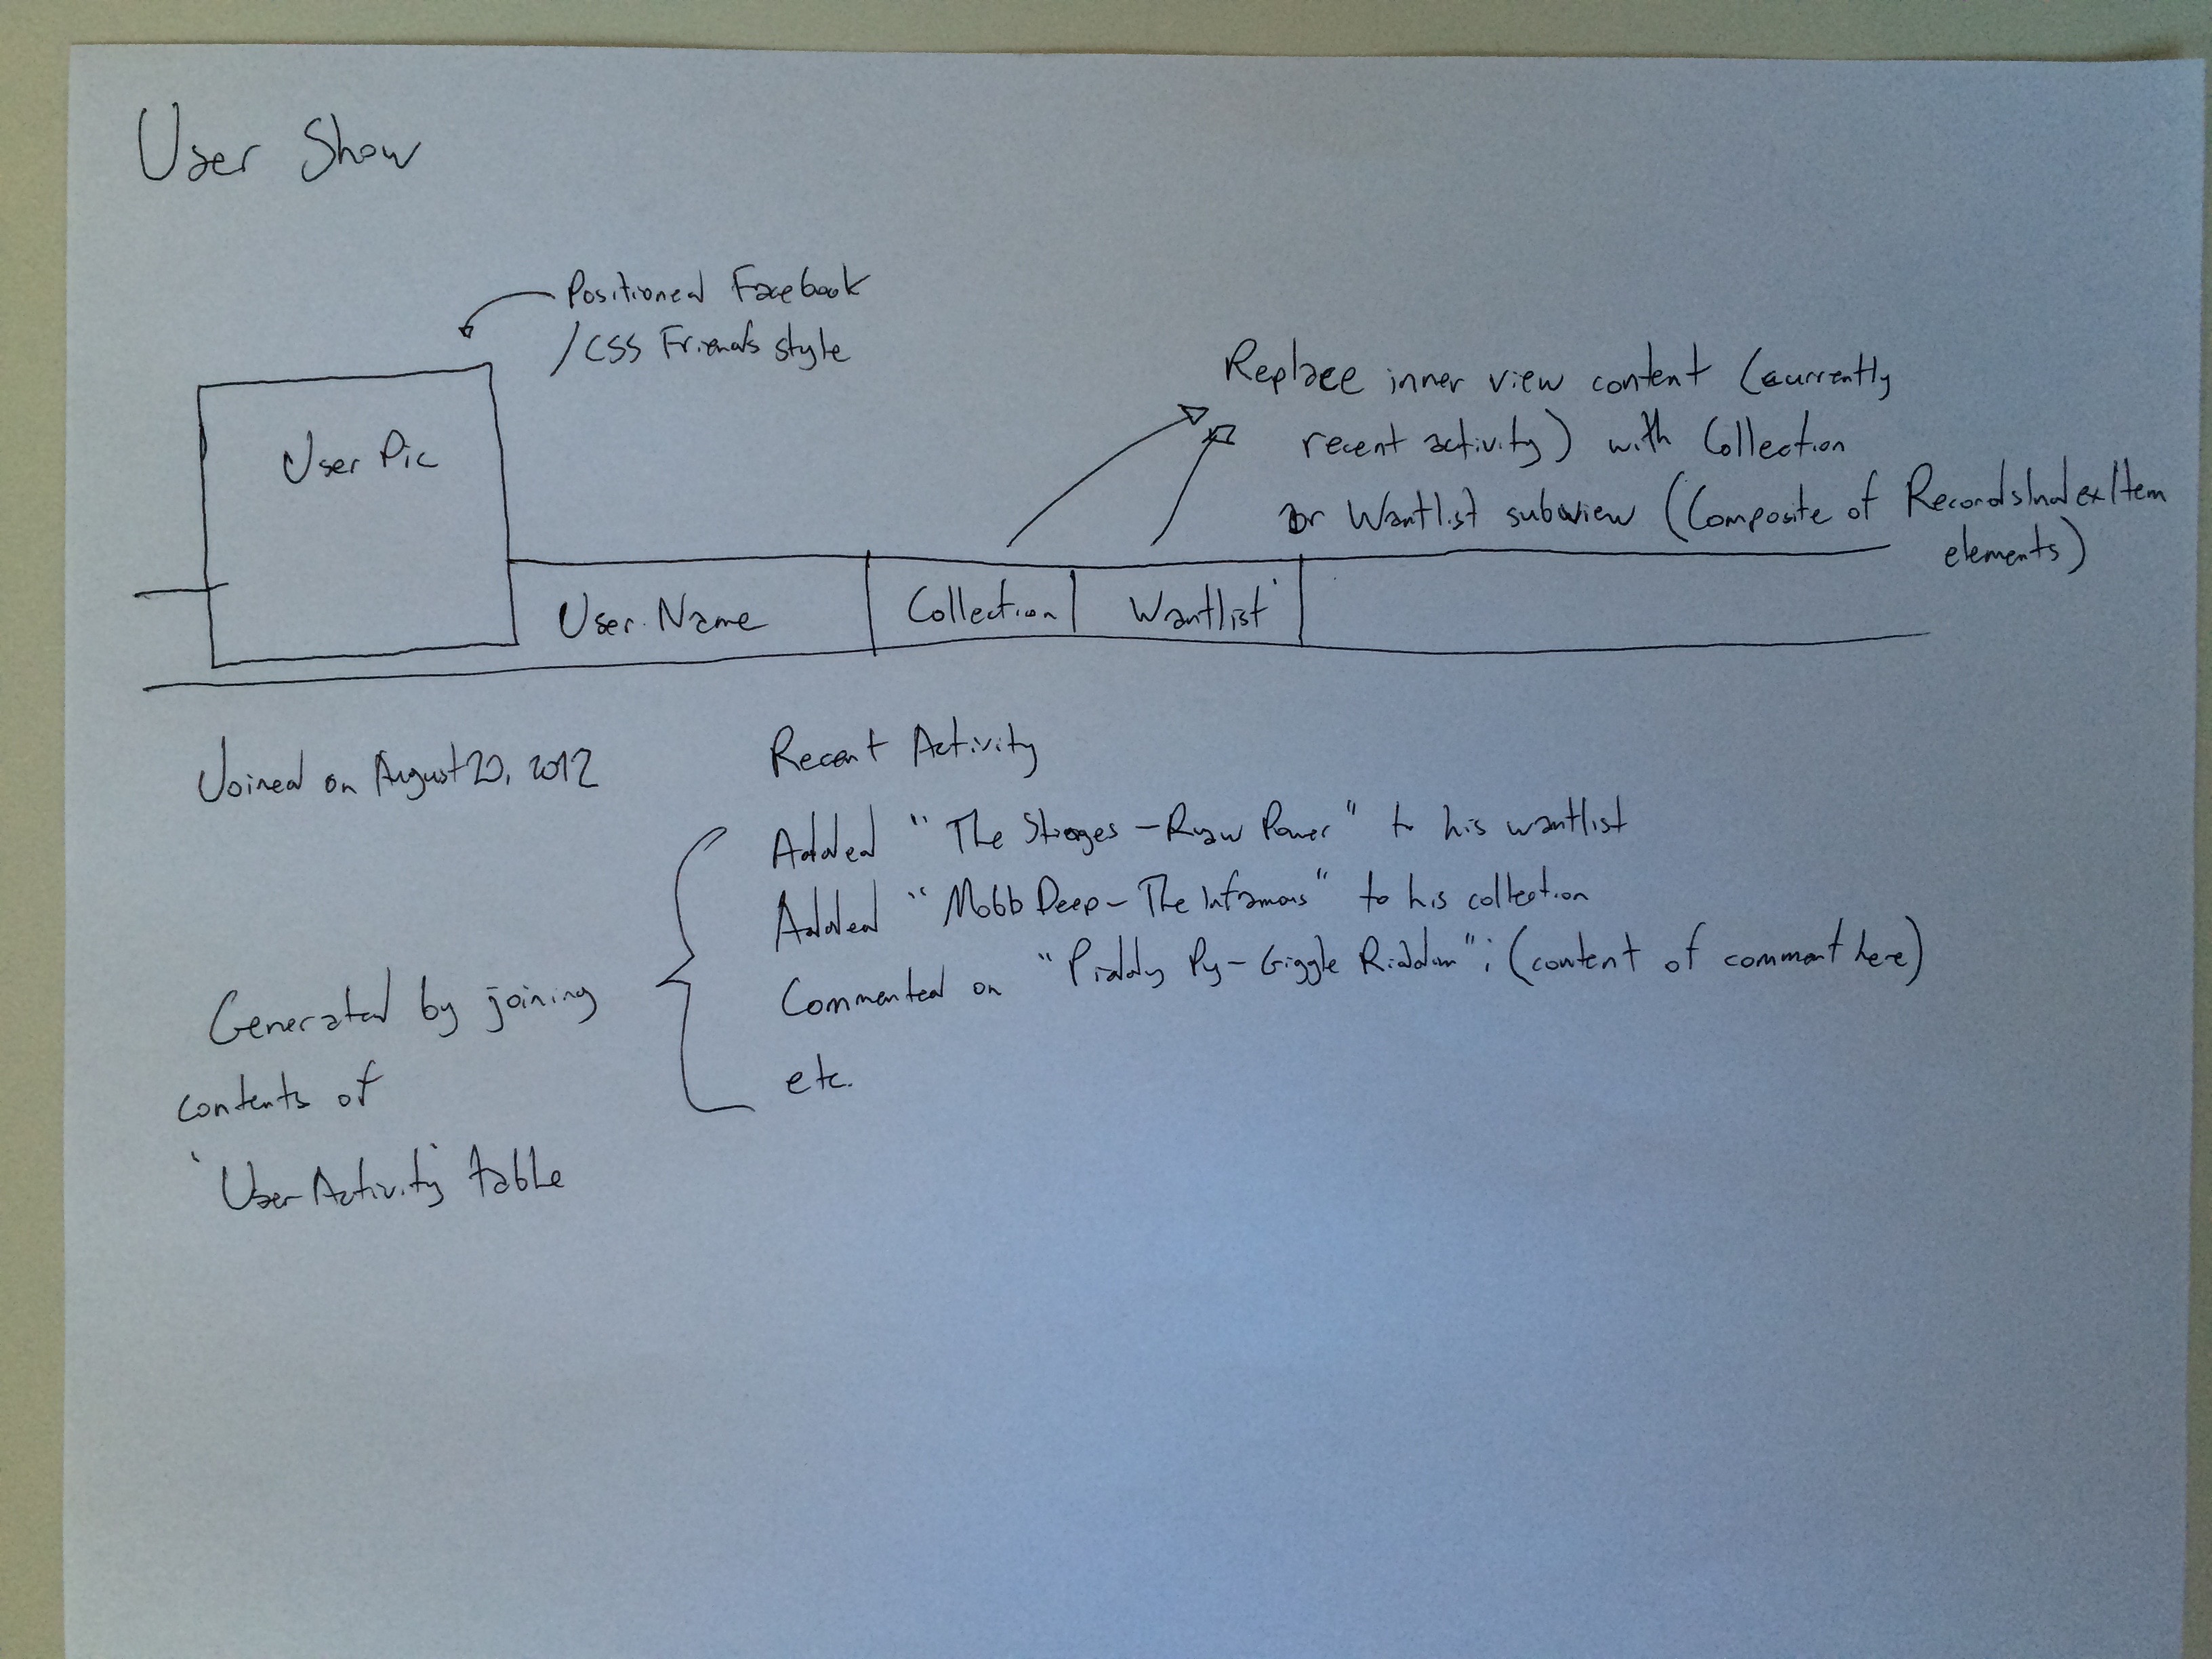 User Show
Positioned Facebook
/CSS Friends style
Replace inner view content (currently
recent activity) with Collection
or Wantlist subview (Composite of RecordsIndexItem
elements)
User Pic
User Name
Collection
Wantlist
Joined on August 20, 2012
Recent Activity
Added "The Stooges - Raw Power" to his wantlist
Added "Mobb Deep - The Infamous" to his collection
Commented on "Piddy Py - Giggle Riddim"; (content of comment here)
etc.
Generated by joining
contents of
'UserActivity' table